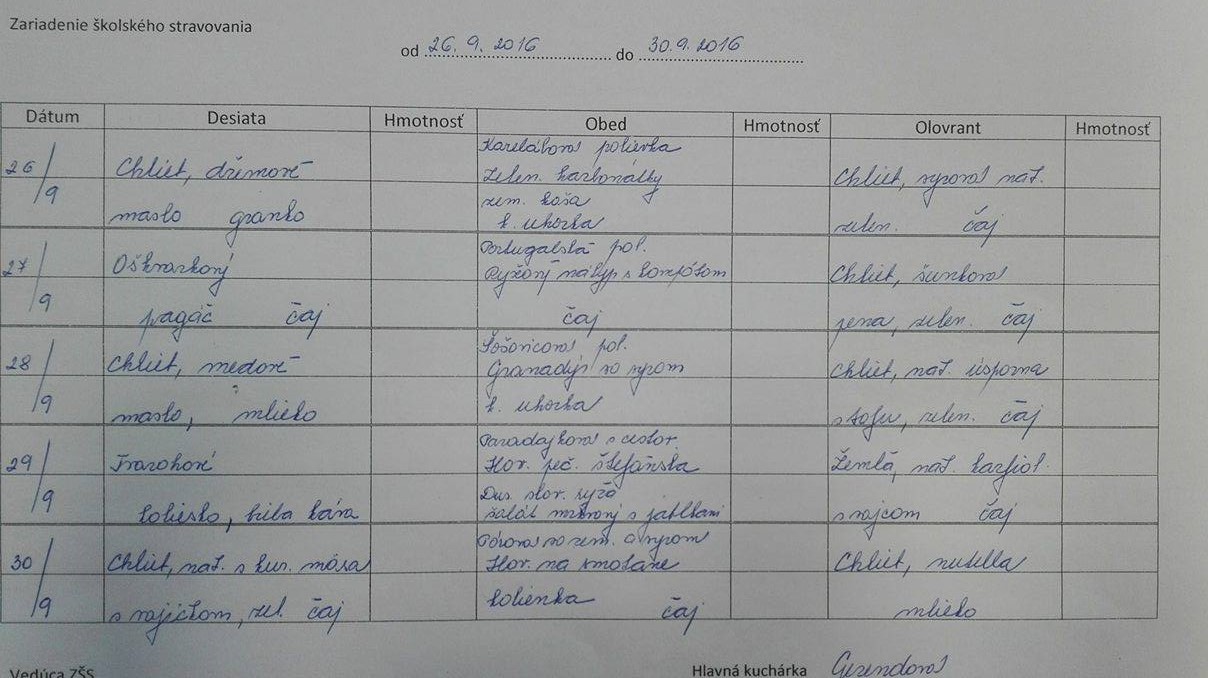 Zariadenie školského stravovania
od 26. 9. 2016 do 30.9. 2016
Dátum Desiata Hmotnosť Obed Hmotnosť Olovrant Hmotnosť
26/9
Chlieb, džemové
maslo granko
Kalerábová polievka
Zelen. karbonátky
zem. kaša
k. uhorka
Chlieb, syrová nát.
zelen. čaj
27/9
Oškvarkový
pagáč čaj
Portugalská pol.
Ryžový nákyp s kompótom
čaj
Chlieb, šunková
pena, zelen. čaj
28/9
Chlieb, medové
maslo, mlieko
Šošovicová pol.
Granadýr so syrom
k. uhorka
Chlieb, nát. úsporná
s tofu, zelen. čaj
29/9
Tvarohové
koliesko, biela káva
Paradajková s cestov.
Hov. peč. štefánska
Dus. slov. ryža
šalát miešaný s jablkami
Žemľa, nát. karfiol.
s vajcom čaj
30/9
Chlieb, nát. s kur. mäsa
s vajíčkom, zel. čaj
Pórová so zem. a syrom
Hov. na smotane
kolienka čaj
Chlieb, nutella
mlieko
Vedúca ZŠS
Hlavná kuchárka